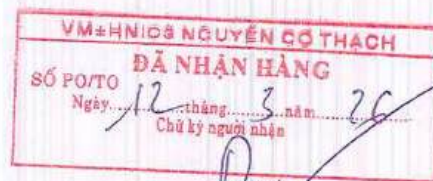 VM±HNIC3 NGUYỄN CƠ THẠCH
ĐÃ NHẬN HÀNG
SỐ PO/TO
Ngày 12 tháng 3 năm 26
Chữ ký người nhận